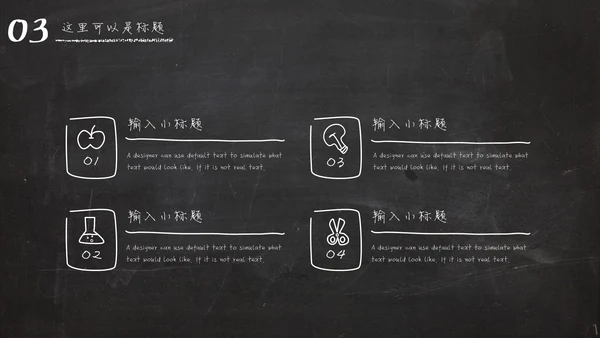 03 这里可以是标题
01
输入小标题
A designer can use default text to simulate what
text would look like. If it is not real text.
03
输入小标题
A designer can use default text to simulate what
text would look like. If it is not real text.
02
输入小标题
A designer can use default text to simulate what
text would look like. If it is not real text.
04
输入小标题
A designer can use default text to simulate what
text would look like. If it is not real text.